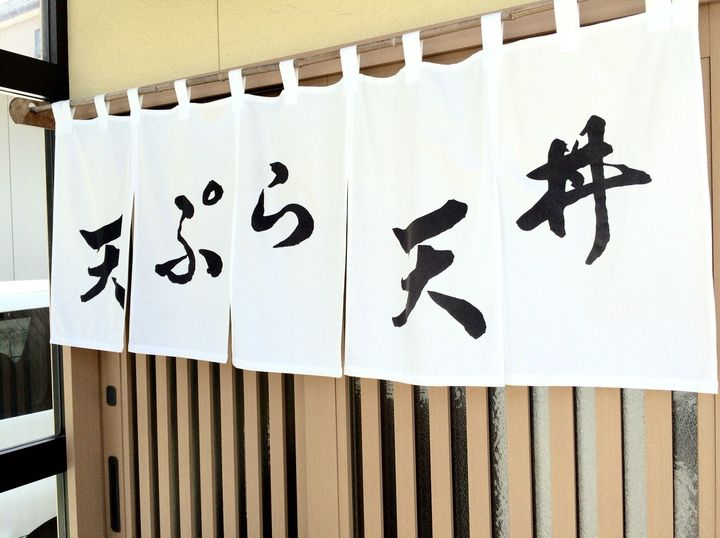 天ぷら天丼